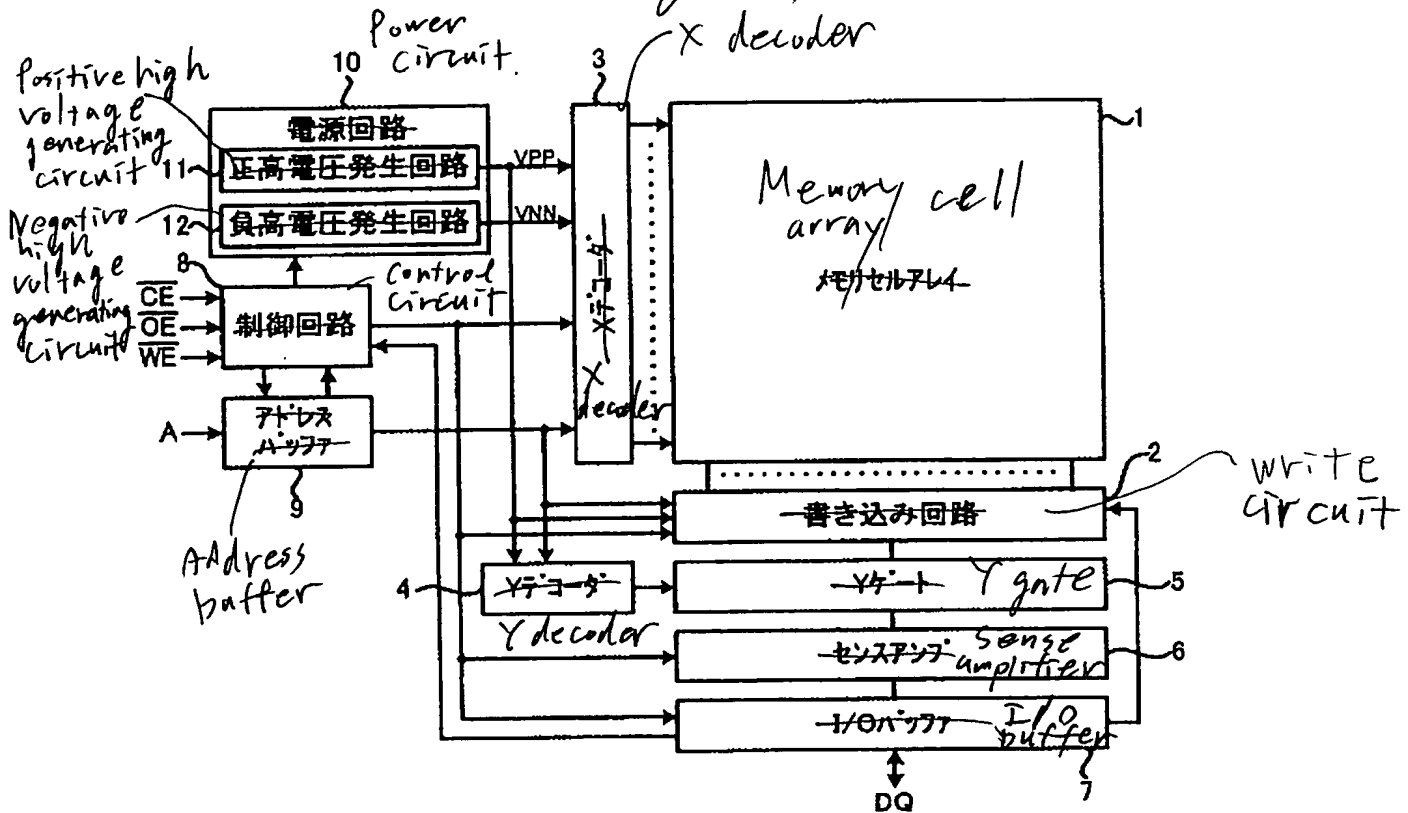 Power
circuit.
10
X decoder
3
Positive high
voltage
generating
circuit
11
電源回路
正高電圧発生回路
VPP
1
Negative
high
voltage
generating
circuit
12
負高電圧発生回路
VNN
Memory cell
array
メモリセルアレイ
8
control
circuit
CE
OE
WE
制御回路
Xデコーダ
X
decoder
A
アドレス
バッファ
9
Address
buffer
2
write
circuit
書き込み回路
4
Yデコーダ
Y decoder
Yゲート
Y gate
5
センスアンプ
Sense
amplifier
6
I/Oバッファ
I/O
buffer
7
DQ